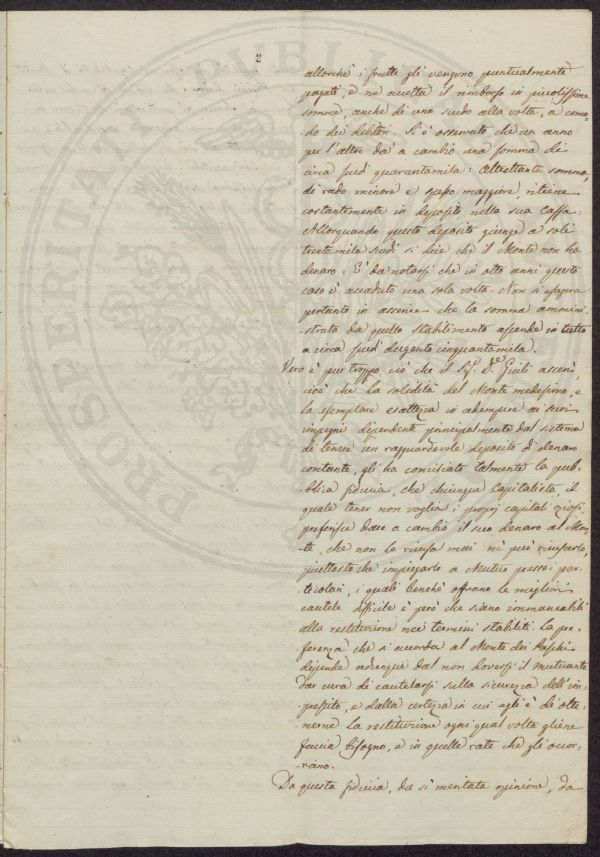 2
allorchè i frutti gli vengono puntualmente
pagati, e ne accetta il rimborso in piccolissime
somme, anche di uno scudo alla volta, a como-
do dei debitori. Si è osservato che un anno
per l'altro dà a cambio una somma di
circa scudi quarantamila: Altrettanta somma,
di rado minore e spesso maggiore, ritiene
costantemente in deposito nella sua Cassa.
Allorquando questo deposito giunge a soli
trentamila scudi si dice che il Monte non ha
denaro. E' da notarsi che in otto anni questo
caso è accaduto una sola volta. Non si esagera
pertanto in asserire che la somma ammini-
strata da quello stabilimento ascende in tutto
a circa scudi dugento cinquantamila.
Vero è pur troppo ciò che il Sig. Dr. Giuli asserì,
cioè che la solidità del Monte medesimo, e
la esemplare esattezza in adempire ai suoi
impegni dipendente principalmente dal sistema
di tenere un ragguardevole deposito di denaro
contante, gli ha conciliato talmente la pub-
blica fiducia, che chiunque Capitalista, il
quale tener non voglia i proprj capitali oziosi,
preferisce dare a cambio il suo denaro al Mon-
te, che non lo ricusa mai nè può ricusarlo,
piuttosto che impiegarlo a Mutuo presso i par-
ticolari, i quali benchè offrano le migliori
cautele difficile è però che siano immancabili
alla restituzione nei termini stabiliti. La pre-
ferenza che si accorda al Monte dei Paschi
dipende adunque dal non doversi il mutuante
dar cura di cautelarsi sulla sicurezza dell'im-
prestito, e dalla certezza in cui egli è di otte-
nerne la restituzione ogni qual volta gliene
faccia bisogno, e in quelle rate che gli occor-
rano.
Da questa fiducia, da sì meritata opinione, da
PROSPERITATI PUBLI